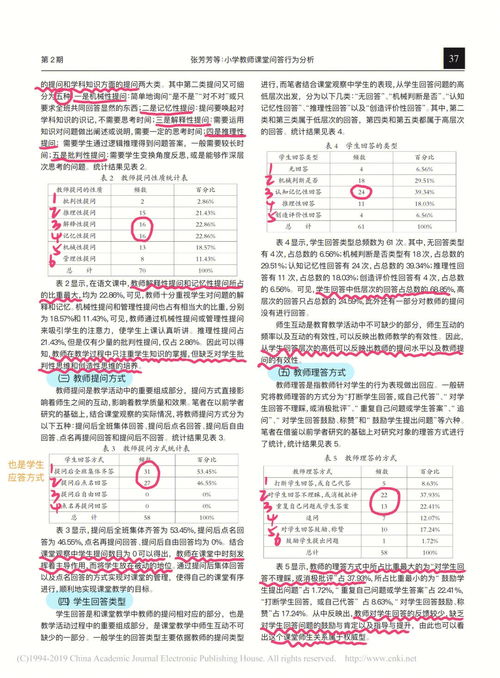 第 2 期
张芳芳等:小学教师课堂问答行为分析
37
的提问和学科知识方面的提问两大类。其中第二类提问又可细
分为五种:一是机械性提问:简单地询问“是不是”“对不对”或只
要求全班共同回答显然的东西;二是记忆性提问:提问要唤起对
学科知识的识记,不需要思考时间;三是解释性提问:需要运用
知识对问题做出阐述或说明,需要一定的思考时间;四是推理性
提问:需要学生通过逻辑推理得到问题答案,一般需要较长时
间;五是批判性提问:需要学生变换角度反思,或是能够作深层
次思考的问题。统计结果见表 2。
表 2 教师提问性质统计表
教师提问的性质 频数 百分比
1 批判性提问 2 2.86%
2 推理性提问 15 21.43%
3 解释性提问 16 22.86%
4 记忆性提问 16 22.86%
5 机械性提问 13 18.57%
6 管理性提问 8 11.43%
总 计 70 100%
表 2 显示,在语文课中,教师解释性提问和记忆性提问所占
的比重最大,均为 22.86%,可见,教师十分重视学生对问题的解
释和记忆。机械性提问和管理性提问也占有相当大的比重,分别
为 18.57%和 11.43%,可见,教师通过机械性提问或管理性提问
来吸引学生的注意力,使学生上课认真听讲。推理性提问占
21.43%,但是仅有少量的批判性提问,仅占 2.86%。因此可以得
知,教师在教学过程中只注重学生知识的掌握,但缺乏对学生批
判性思维和创造性思维的培养。
(三)教师提问方式
教师提问是教学活动中的重要组成部分,提问方式直接影
响着师生之间的互动,影响着教学质量和效果。笔者在以前学者
研究的基础上,结合课堂观察的实际情况,将教师提问方式分为
以下五种:提问后全班集体回答、提问后点名回答、提问后自由
回答、点名再提问回答和提问后不回答。统计结果见表 3。
表 3 教师提问方式统计表
学生回答方式 频数 百分比
1 提问后全班集体齐答 31 53.45%
2 提问后点名回答 27 46.55%
3 提问后自由回答 0 0%
4 点名再提问回答 0 0%
总 计 58 100%
也是学生
应答方式
表 3 显示,提问后全班集体齐答为 53.45%,提问后点名回
答为 46.55%,点名再提问回答、提问后自由回答均为 0%。结合
课堂观察中学生提问数目为 0 可以得出,教师在课堂中时刻发
挥着主导作用,而将学生放在被动的地位,通过提问后集体回答
以及点名回答的方式实现对课堂的管理,使得自己的课堂有序
进行,顺利地实现课堂教学的目标。
(四)学生回答类型
学生回答是和课堂教学中教师的提问相对应的部分,也是
教学活动过程中的重要组成部分,是课堂教学中师生互动不可
缺少的一部分。一般学生的回答类型主要依据教师的提问类型
进行,而笔者结合课堂观察中学生的表现,从学生回答问题的高
低层次出发,分为以下几类:“无回答”、“机械判断是否”、“认知
记忆性回答”、“推理性回答”以及“创造评价性回答”。其中,第二
类和第三类属于低层次的回答,第四类和第五类都属于高层次
的回答。统计结果见表 4。
表 4 学生回答的类型
学生回答类型 频数 百分比
1 无回答 4 6.56%
2 机械判断是否 18 29.51%
3 认知记忆性回答 24 39.34%
4 推理性回答 11 18.03%
5 创造评价性回答 4 6.56%
总 计 61 100%
表 4 显示,学生回答类型总频数为 61 次。其中,无回答类型
有 4 次,占总数的 6.56%;机械判断是否类型有 18 次,占总数的
29.51%;认知记忆性回答有 24 次,占总数的 39.34%;推理性回
答有 11 次,占总数的 18.03%;创造评价性回答有 4 次,占总数
的 6.56%。可见,学生回答中低层次的回答占总数的 68.85%,高
层次的回答只占总数的 24.59%,此外还有一部分对教师的提问
没有进行回答。
师生互动是教育教学活动中不可缺少的部分,师生互动的
频率以及互动的有效性,可以反映出教师教学的有效性。因此,
从学生回答层次的高低可以反映出教师的提问水平以及教师提
问的有效性。
(五)教师理答方式
教师理答是指教师针对学生的行为表现做出回应。一般研
究将教师理答的方式分为“打断学生回答,或自己代答”、“对学
生回答不理睬,或消极批评”、“重复自己问题或学生答案”、“追
问”、“对学生回答鼓励、称赞”和“鼓励学生提出问题”等六种。
笔者在借鉴以前学者研究的基础上对对象的理答方式进行
了统计,统计结果见表 5。
表 5 教师理答的方式
教师理答方式 频数 百分比
1 打断学生回答,或自己代答 5 8.63%
2 对学生回答不理睬,或消极批评 22 37.93%
3 重复自己问题或学生答案 13 22.41%
4 追问 7 12.07%
5 对学生回答鼓励、称赞 10 17.24%
6 鼓励学生提出问题 1 1.72%
总计 58 100%
表 5 显示,教师的理答方式中所占比重最大的为“对学生回
答不理睬,或消极批评”占 37.93%,所占比重最小的为“鼓励学
生提出问题”占 1.72%,“重复自己问题或学生答案”占 22.41%,
“打断学生回答,或自己代答”占 8.63%,“对学生回答鼓励、称
赞”占 17.24%。从中反映出,教师对学生回答的反馈较少,缺乏
对学生回答问题的鼓励与肯定以及指导与提升,由此也可以看
出这个课堂师生关系属于权威型。
(C)1994-2019 China Academic Journal Electronic Publishing House. All rights reserved. http://www.cnki.net